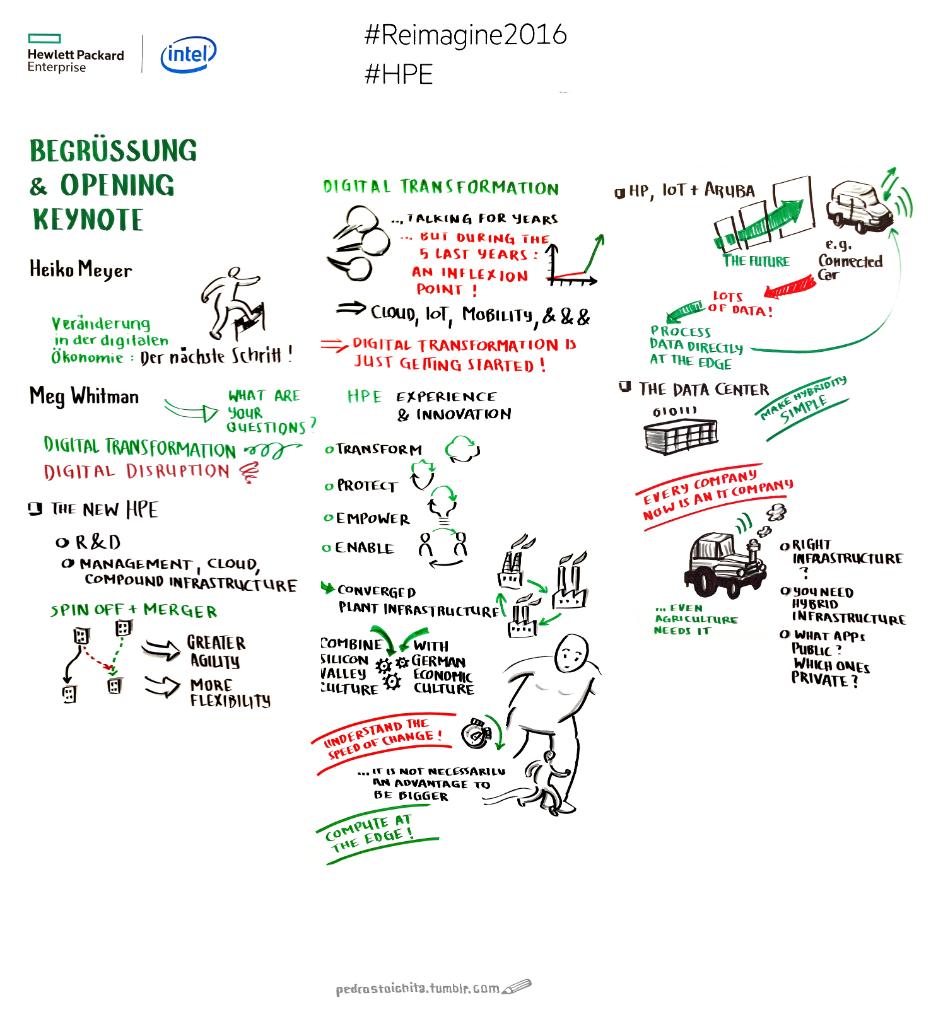 Hewlett Packard
Enterprise
intel
#Reimagine2016
#HPE
BEGRÜSSUNG
& OPENING
KEYNOTE
Heiko Meyer
Veränderung
in der digitalen
Ökonomie : Der nächste Schritt !
Meg Whitman
WHAT ARE
YOUR
QUESTIONS?
DIGITAL TRANSFORMATION
DIGITAL DISRUPTION
THE NEW HPE
R&D
MANAGEMENT, CLOUD,
COMPOUND INFRASTRUCTURE
SPIN OFF + MERGER
GREATER
AGILITY
MORE
FLEXIBILITY
DIGITAL TRANSFORMATION
... TALKING FOR YEARS
... BUT DURING THE
5 LAST YEARS :
AN INFLEXION
POINT !
CLOUD, IoT, MOBILITY, & & &
DIGITAL TRANSFORMATION IS
JUST GETTING STARTED !
HPE EXPERIENCE
& INNOVATION
TRANSFORM
PROTECT
EMPOWER
ENABLE
CONVERGED
PLANT INFRASTRUCTURE
COMBINE
SILICON
VALLEY
CULTURE
WITH
GERMAN
ECONOMIC
CULTURE
UNDERSTAND THE
SPEED OF CHANGE !
... IT IS NOT NECESSARILY
AN ADVANTAGE TO
BE BIGGER
COMPUTE AT
THE EDGE !
HP, IoT + ARUBA
THE FUTURE
e.g.
Connected
Car
LOTS
OF DATA!
PROCESS
DATA DIRECTLY
AT THE EDGE
THE DATA CENTER
010111
MAKE HYBRIDITY
SIMPLE
EVERY COMPANY
NOW IS AN IT COMPANY
... EVEN
AGRICULTURE
NEEDS IT
RIGHT
INFRASTRUCTURE
?
YOU NEED
HYBRID
INFRASTRUCTURE
WHAT APPS
PUBLIC ?
WHICH ONES
PRIVATE ?
pedrostoichita.tumblr.com